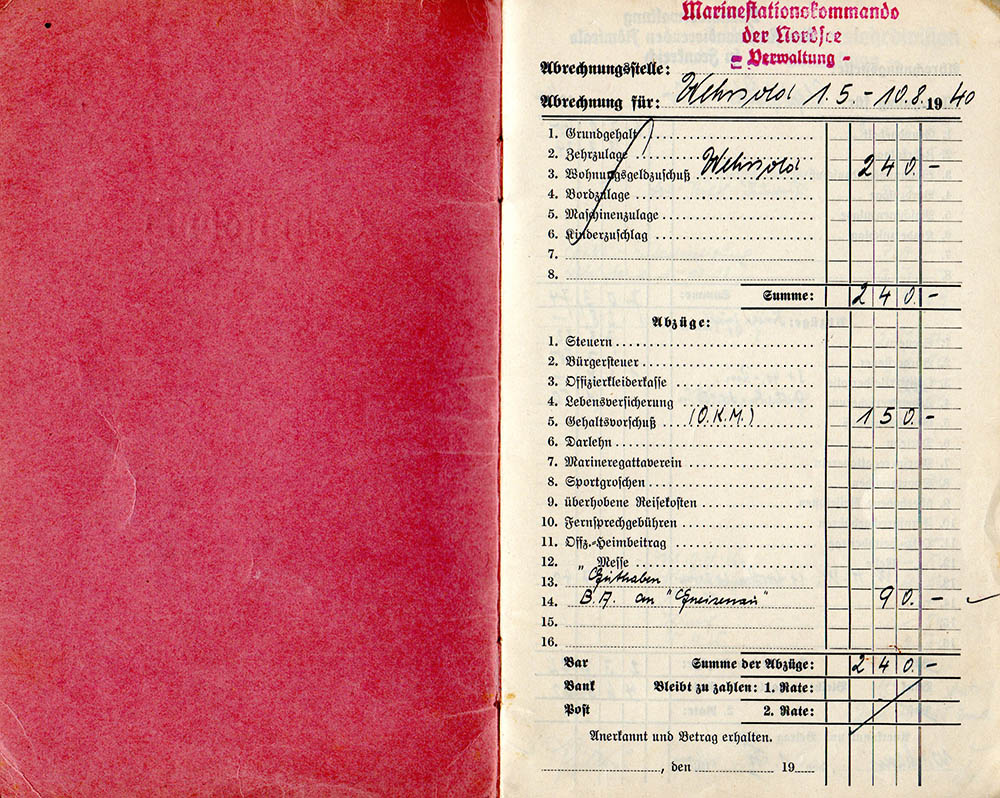 Marinestationskommando
der Nordsee
= Verwaltung -
Abrechnungsstelle:
Abrechnung für: Wehrsold 1.5.-10.8.1940
1. Grundgehalt
2. Zehrzulage
3. Wohnungsgeldzuschuß Wehrsold 240.-
4. Bordzulage
5. Maschinenzulage
6. Kinderzuschlag
7.
8.
Summe: 240.-
Abzüge:
1. Steuern
2. Bürgersteuer
3. Offizierkleiderkasse
4. Lebensversicherung
5. Gehaltsvorschuß (O.K.M.) 150.-
6. Darlehn
7. Marineregattaverein
8. Sportgroschen
9. überhobene Reisekosten
10. Fernsprechgebühren
11. Offz.-Heimbeitrag
12. „ Messe
13. Guthaben
14. B.A. an "Gneisenau" 90.-
15.
16.
Bar Summe der Abzüge: 240.-
Bank Bleibt zu zahlen: 1. Rate:
Post 2. Rate:
Anerkannt und Betrag erhalten.
, den 19